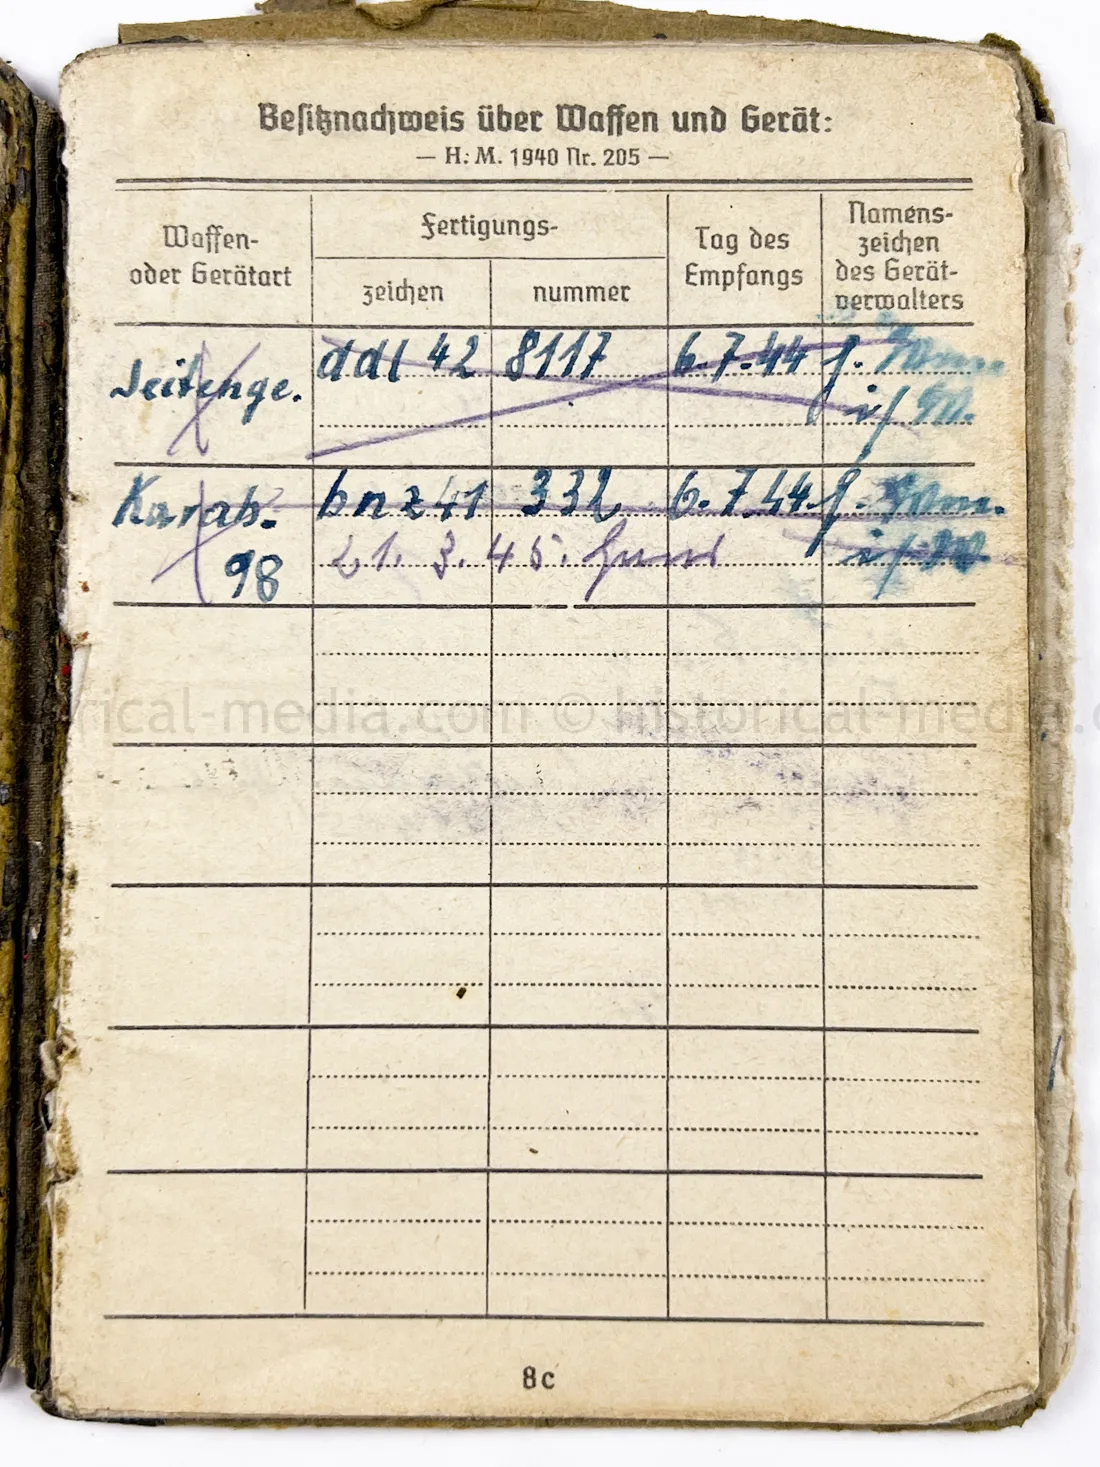 Besitznachweis über Waffen und Gerät:
— H. M. 1940 Nr. 205 —
Waffen-
oder Gerätart
Fertigungs-
zeichen
nummer
Tag des
Empfangs
Namens-
zeichen
des Gerät-
verwalters
Seitenge. ddl 42 8117 6.7.44
Karab. bnz 41 332 6.7.44.
98 21. 3. 45.
historical-media.com © historical-media.c
8c